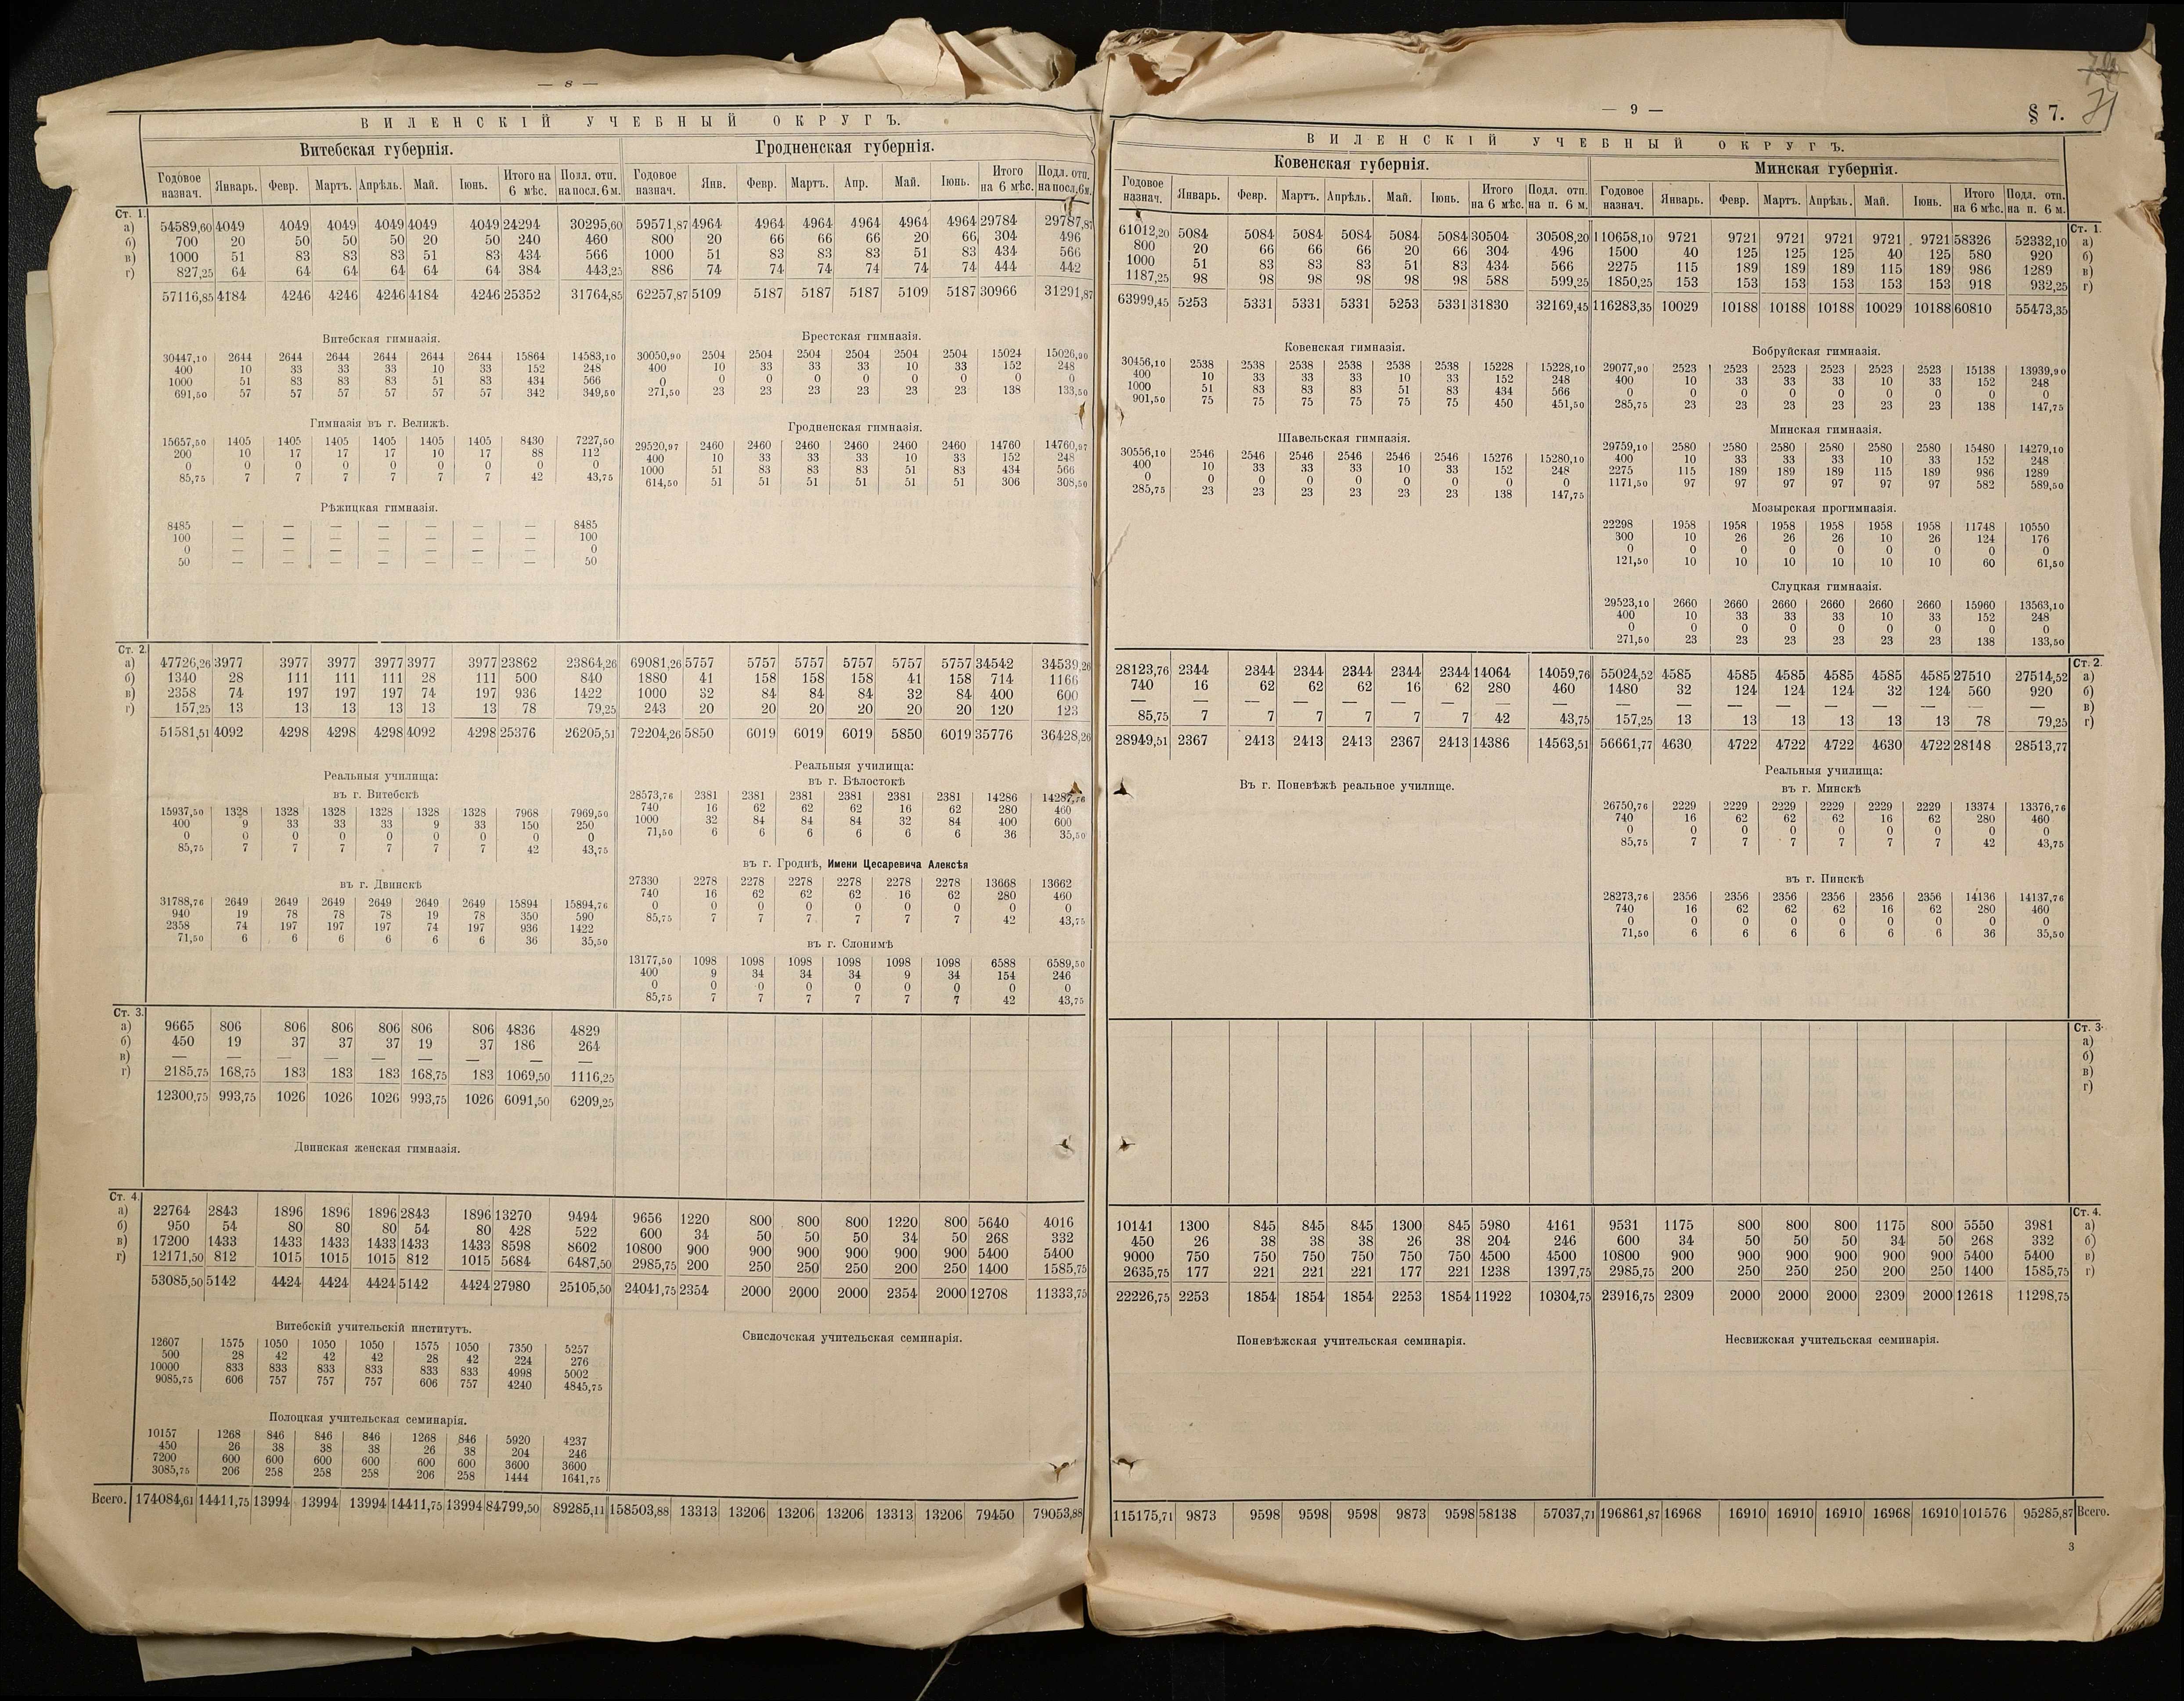 — 8 —
ВИЛЕНСКІЙ УЧЕБНЫЙ ОКРУГЪ.
Витебская губернія. Гродненская губернія.
Годовое назнач. Январь. Февр. Мартъ. Апрѣль. Май. Іюнь. Итого на 6 мѣс. Подл. отп. на посл. 6 м. Годовое назнач. Янв. Февр. Мартъ. Апр. Май. Іюнь. Итого на 6 мѣс. Подл. отп. на посл. 6 м.
Ст. 1.
а) 54589,60 4049 4049 4049 4049 4049 4049 24294 30295,60 59571,87 4964 4964 4964 4964 4964 4964 29784 29787,87
б) 700 20 50 50 50 20 50 240 460 800 20 66 66 66 20 66 304 496
в) 1000 51 83 83 83 51 83 434 566 1000 51 83 83 83 51 83 434 566
г) 827,25 64 64 64 64 64 64 384 443,25 886 74 74 74 74 74 74 444 442
57116,85 4184 4246 4246 4246 4184 4246 25352 31764,85 62257,87 5109 5187 5187 5187 5109 5187 30966 31291,87
Витебская гимназія. Брестская гимназія.
30447,10 2644 2644 2644 2644 2644 2644 15864 14583,10 30050,90 2504 2504 2504 2504 2504 2504 15024 15026,90
400 10 33 33 33 10 33 152 248 400 10 33 33 33 10 33 152 248
1000 51 83 83 83 51 83 434 566 0 0 0 0 0 0 0 0 0
691,50 57 57 57 57 57 57 342 349,50 271,50 23 23 23 23 23 23 138 133,50
Гимназія въ г. Велижѣ. Гродненская гимназія.
15657,50 1405 1405 1405 1405 1405 1405 8430 7227,50 29520,97 2460 2460 2460 2460 2460 2460 14760 14760,97
200 10 17 17 17 10 17 88 112 400 10 33 33 33 10 33 152 248
0 0 0 0 0 0 0 0 0 1000 51 83 83 83 51 83 434 566
85,75 7 7 7 7 7 7 42 43,75 614,50 51 51 51 51 51 51 306 308,50
Рѣжицкая гимназія.
8485 — — — — — — — 8485
100 — — — — — — — 100
0 — — — — — — — 0
50 — — — — — — — 50
Ст. 2.
а) 47726,26 3977 3977 3977 3977 3977 3977 23862 23864,26 69081,26 5757 5757 5757 5757 5757 5757 34542 34539,26
б) 1340 28 111 111 111 28 111 500 840 1880 41 158 158 158 41 158 714 1166
в) 2358 74 197 197 197 74 197 936 1422 1000 32 84 84 84 32 84 400 600
г) 157,25 13 13 13 13 13 13 78 79,25 243 20 20 20 20 20 20 120 123
51581,51 4092 4298 4298 4298 4092 4298 25376 26205,51 72204,26 5850 6019 6019 6019 5850 6019 35776 36428,26
Реальныя училища: Реальныя училища:
въ г. Витебскѣ въ г. Бѣлостокѣ
15937,50 1328 1328 1328 1328 1328 1328 7968 7969,50 28573,76 2381 2381 2381 2381 2381 2381 14286 14287,76
400 9 33 33 33 9 33 150 250 740 16 62 62 62 16 62 280 460
0 0 0 0 0 0 0 0 0 1000 32 84 84 84 32 84 400 600
85,75 7 7 7 7 7 7 42 43,75 71,50 6 6 6 6 6 6 36 35,50
въ г. Двинскѣ въ г. Гроднѣ, Имени Цесаревича Алексѣя
31788,76 2649 2649 2649 2649 2649 2649 15894 15894,76 27330 2278 2278 2278 2278 2278 2278 13668 13662
940 19 78 78 78 19 78 350 590 740 16 62 62 62 16 62 280 460
2358 74 197 197 197 74 197 936 1422 0 0 0 0 0 0 0 0 0
71,50 6 6 6 6 6 6 36 35,50 85,75 7 7 7 7 7 7 42 43,75
въ г. Слонимѣ
13177,50 1098 1098 1098 1098 1098 1098 6588 6589,50
400 9 34 34 34 9 34 154 246
0 0 0 0 0 0 0 0 0
85,75 7 7 7 7 7 7 42 43,75
Ст. 3.
а) 9665 806 806 806 806 806 806 4836 4829
б) 450 19 37 37 37 19 37 186 264
в) — — — — — — — — —
г) 2185,75 168,75 183 183 183 168,75 183 1069,50 1116,25
12300,75 993,75 1026 1026 1026 993,75 1026 6091,50 6209,25
Двинская женская гимназія.
Ст. 4.
а) 22764 2843 1896 1896 1896 2843 1896 13270 9494 9656 1220 800 800 800 1220 800 5640 4016
б) 950 54 80 80 80 54 80 428 522 600 34 50 50 50 34 50 268 332
в) 17200 1433 1433 1433 1433 1433 1433 8598 8602 10800 900 900 900 900 900 900 5400 5400
г) 12171,50 812 1015 1015 1015 812 1015 5684 6487,50 2985,75 200 250 250 250 200 250 1400 1585,75
53085,50 5142 4424 4424 4424 5142 4424 27980 25105,50 24041,75 2354 2000 2000 2000 2354 2000 12708 11333,75
Витебскій учительскій институтъ. Свислочская учительская семинарія.
12607 1575 1050 1050 1050 1575 1050 7350 5257
500 28 42 42 42 28 42 224 276
10000 833 833 833 833 833 833 4998 5002
9085,75 606 757 757 757 606 757 4240 4845,75
Полоцкая учительская семинарія.
10157 1268 846 846 846 1268 846 5920 4237
450 26 38 38 38 26 38 204 246
7200 600 600 600 600 600 600 3600 3600
3085,75 206 258 258 258 206 258 1444 1641,75
Всего. 174084,61 14411,75 13994 13994 13994 14411,75 13994 84799,50 89285,11 158503,88 13313 13206 13206 13206 13313 13206 79450 79053,88
— 9 —
§ 7.
71
ВИЛЕНСКІЙ УЧЕБНЫЙ ОКРУГЪ.
Ковенская губернія. Минская губернія.
Годовое назнач. Январь. Февр. Мартъ. Апрѣль. Май. Іюнь. Итого на 6 мѣс. Подл. отп. на п. 6 м. Годовое назнач. Январь. Февр. Мартъ. Апрѣль. Май. Іюнь. Итого на 6 мѣс. Подл. отп. на п. 6 м.
Ст. 1.
61012,20 5084 5084 5084 5084 5084 5084 30504 30508,20 110658,10 9721 9721 9721 9721 9721 9721 58326 52332,10 а)
800 20 66 66 66 20 66 304 496 1500 40 125 125 125 40 125 580 920 б)
1000 51 83 83 83 51 83 434 566 2275 115 189 189 189 115 189 986 1289 в)
1187,25 98 98 98 98 98 98 588 599,25 1850,25 153 153 153 153 153 153 918 932,25 г)
63999,45 5253 5331 5331 5331 5253 5331 31830 32169,45 116283,35 10029 10188 10188 10188 10029 10188 60810 55473,35
Ковенская гимназія. Бобруйская гимназія.
30456,10 2538 2538 2538 2538 2538 2538 15228 15228,10 29077,90 2523 2523 2523 2523 2523 2523 15138 13939,90
400 10 33 33 33 10 33 152 248 400 10 33 33 33 10 33 152 248
1000 51 83 83 83 51 83 434 566 0 0 0 0 0 0 0 0 0
901,50 75 75 75 75 75 75 450 451,50 285,75 23 23 23 23 23 23 138 147,75
Шавельская гимназія. Минская гимназія.
30556,10 2546 2546 2546 2546 2546 2546 15276 15280,10 29759,10 2580 2580 2580 2580 2580 2580 15480 14279,10
400 10 33 33 33 10 33 152 248 400 10 33 33 33 10 33 152 248
0 0 0 0 0 0 0 0 0 2275 115 189 189 189 115 189 986 1289
285,75 23 23 23 23 23 23 138 147,75 1171,50 97 97 97 97 97 97 582 589,50
Мозырская прогимназія.
22298 1958 1958 1958 1958 1958 1958 11748 10550
300 10 26 26 26 10 26 124 176
0 0 0 0 0 0 0 0 0
121,50 10 10 10 10 10 10 60 61,50
Слуцкая гимназія.
29523,10 2660 2660 2660 2660 2660 2660 15960 13563,10
400 10 33 33 33 10 33 152 248
0 0 0 0 0 0 0 0 0
271,50 23 23 23 23 23 23 138 133,50
Ст. 2.
28123,76 2344 2344 2344 2344 2344 2344 14064 14059,76 55024,52 4585 4585 4585 4585 4585 4585 27510 27514,52 а)
740 16 62 62 62 16 62 280 460 1480 32 124 124 124 32 124 560 920 б)
— — — — — — — — — — — — — — — — — — в)
85,75 7 7 7 7 7 7 42 43,75 157,25 13 13 13 13 13 13 78 79,25 г)
28949,51 2367 2413 2413 2413 2367 2413 14386 14563,51 56661,77 4630 4722 4722 4722 4630 4722 28148 28513,77
Въ г. Поневѣжѣ реальное училище. Реальныя училища:
въ г. Минскѣ
26750,76 2229 2229 2229 2229 2229 2229 13374 13376,76
740 16 62 62 62 16 62 280 460
0 0 0 0 0 0 0 0 0
85,75 7 7 7 7 7 7 42 43,75
въ г. Пинскѣ
28273,76 2356 2356 2356 2356 2356 2356 14136 14137,76
740 16 62 62 62 16 62 280 460
0 0 0 0 0 0 0 0 0
71,50 6 6 6 6 6 6 36 35,50
Ст. 3.
а)
б)
в)
г)
Ст. 4.
10141 1300 845 845 845 1300 845 5980 4161 9531 1175 800 800 800 1175 800 5550 3981 а)
450 26 38 38 38 26 38 204 246 600 34 50 50 50 34 50 268 332 б)
9000 750 750 750 750 750 750 4500 4500 10800 900 900 900 900 900 900 5400 5400 в)
2635,75 177 221 221 221 177 221 1238 1397,75 2985,75 200 250 250 250 200 250 1400 1585,75 г)
22226,75 2253 1854 1854 1854 2253 1854 11922 10304,75 23916,75 2309 2000 2000 2000 2309 2000 12618 11298,75
Поневѣжская учительская семинарія. Несвижская учительская семинарія.
115175,71 9873 9598 9598 9598 9873 9598 58138 57037,71 196861,87 16968 16910 16910 16910 16968 16910 101576 95285,87 Всего.
3